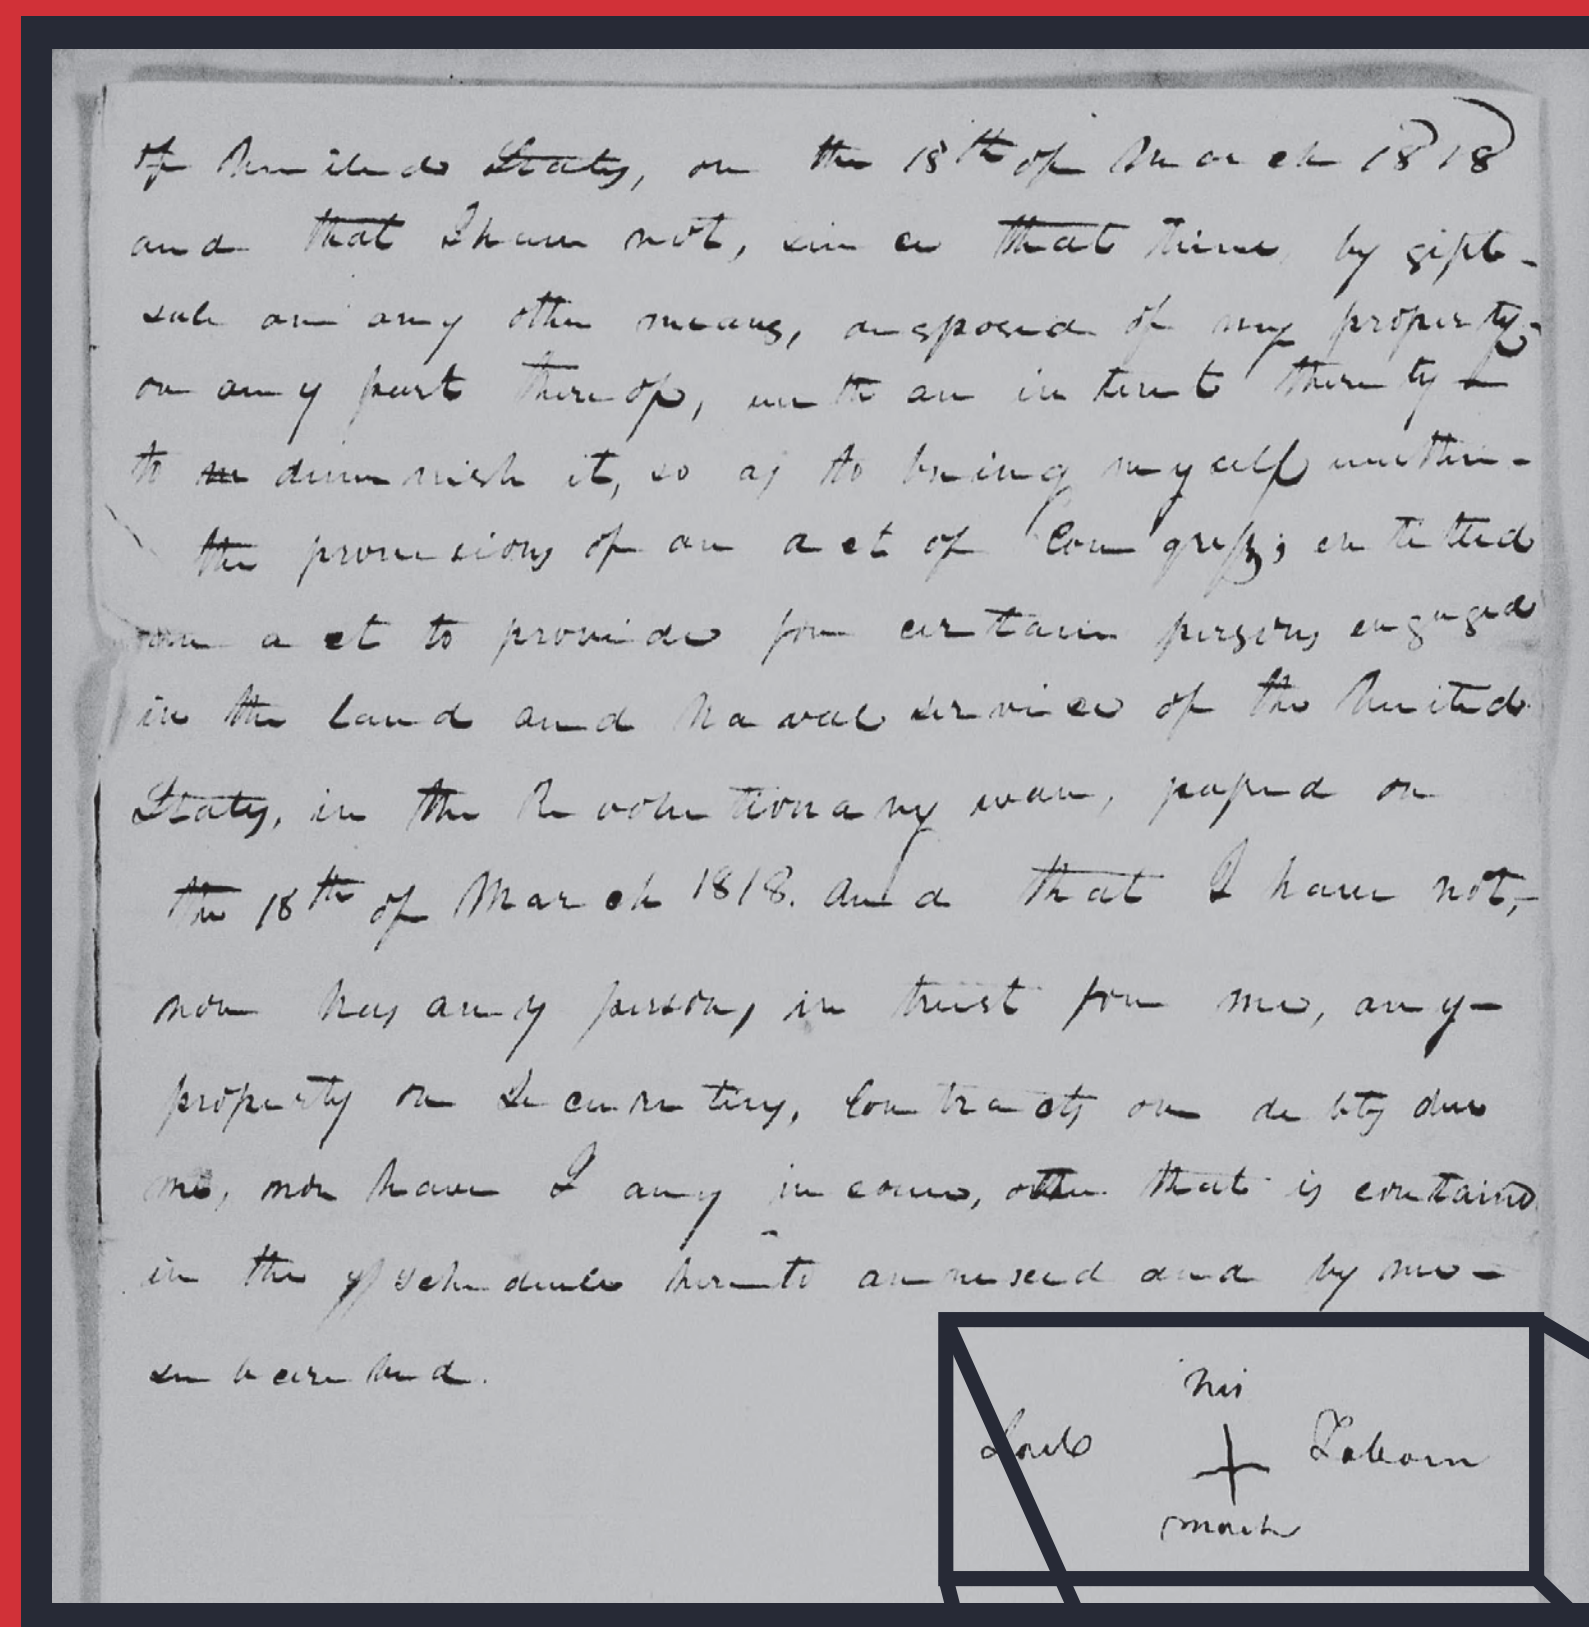 of United States, on the 18th of March 1818
and that I have not, since that time, by gift-
sale or any other means, disposed of my property,
or any part thereof, with an intent thereby
to diminish it, so as to bring myself within-
the provisions of an act of Congress; entitled
an act to provide for certain persons engaged
in the land and naval service of the United
States, in the Revolutionary war, passed on
the 18th of March 1818. and that I have not,-
nor has any person, in trust for me, any-
property or securities, Contracts or debts due
me, nor have I any income, other that is contained
in the schedule hereto annexed and by me-
subscribed.
his
+ Taborn
mark